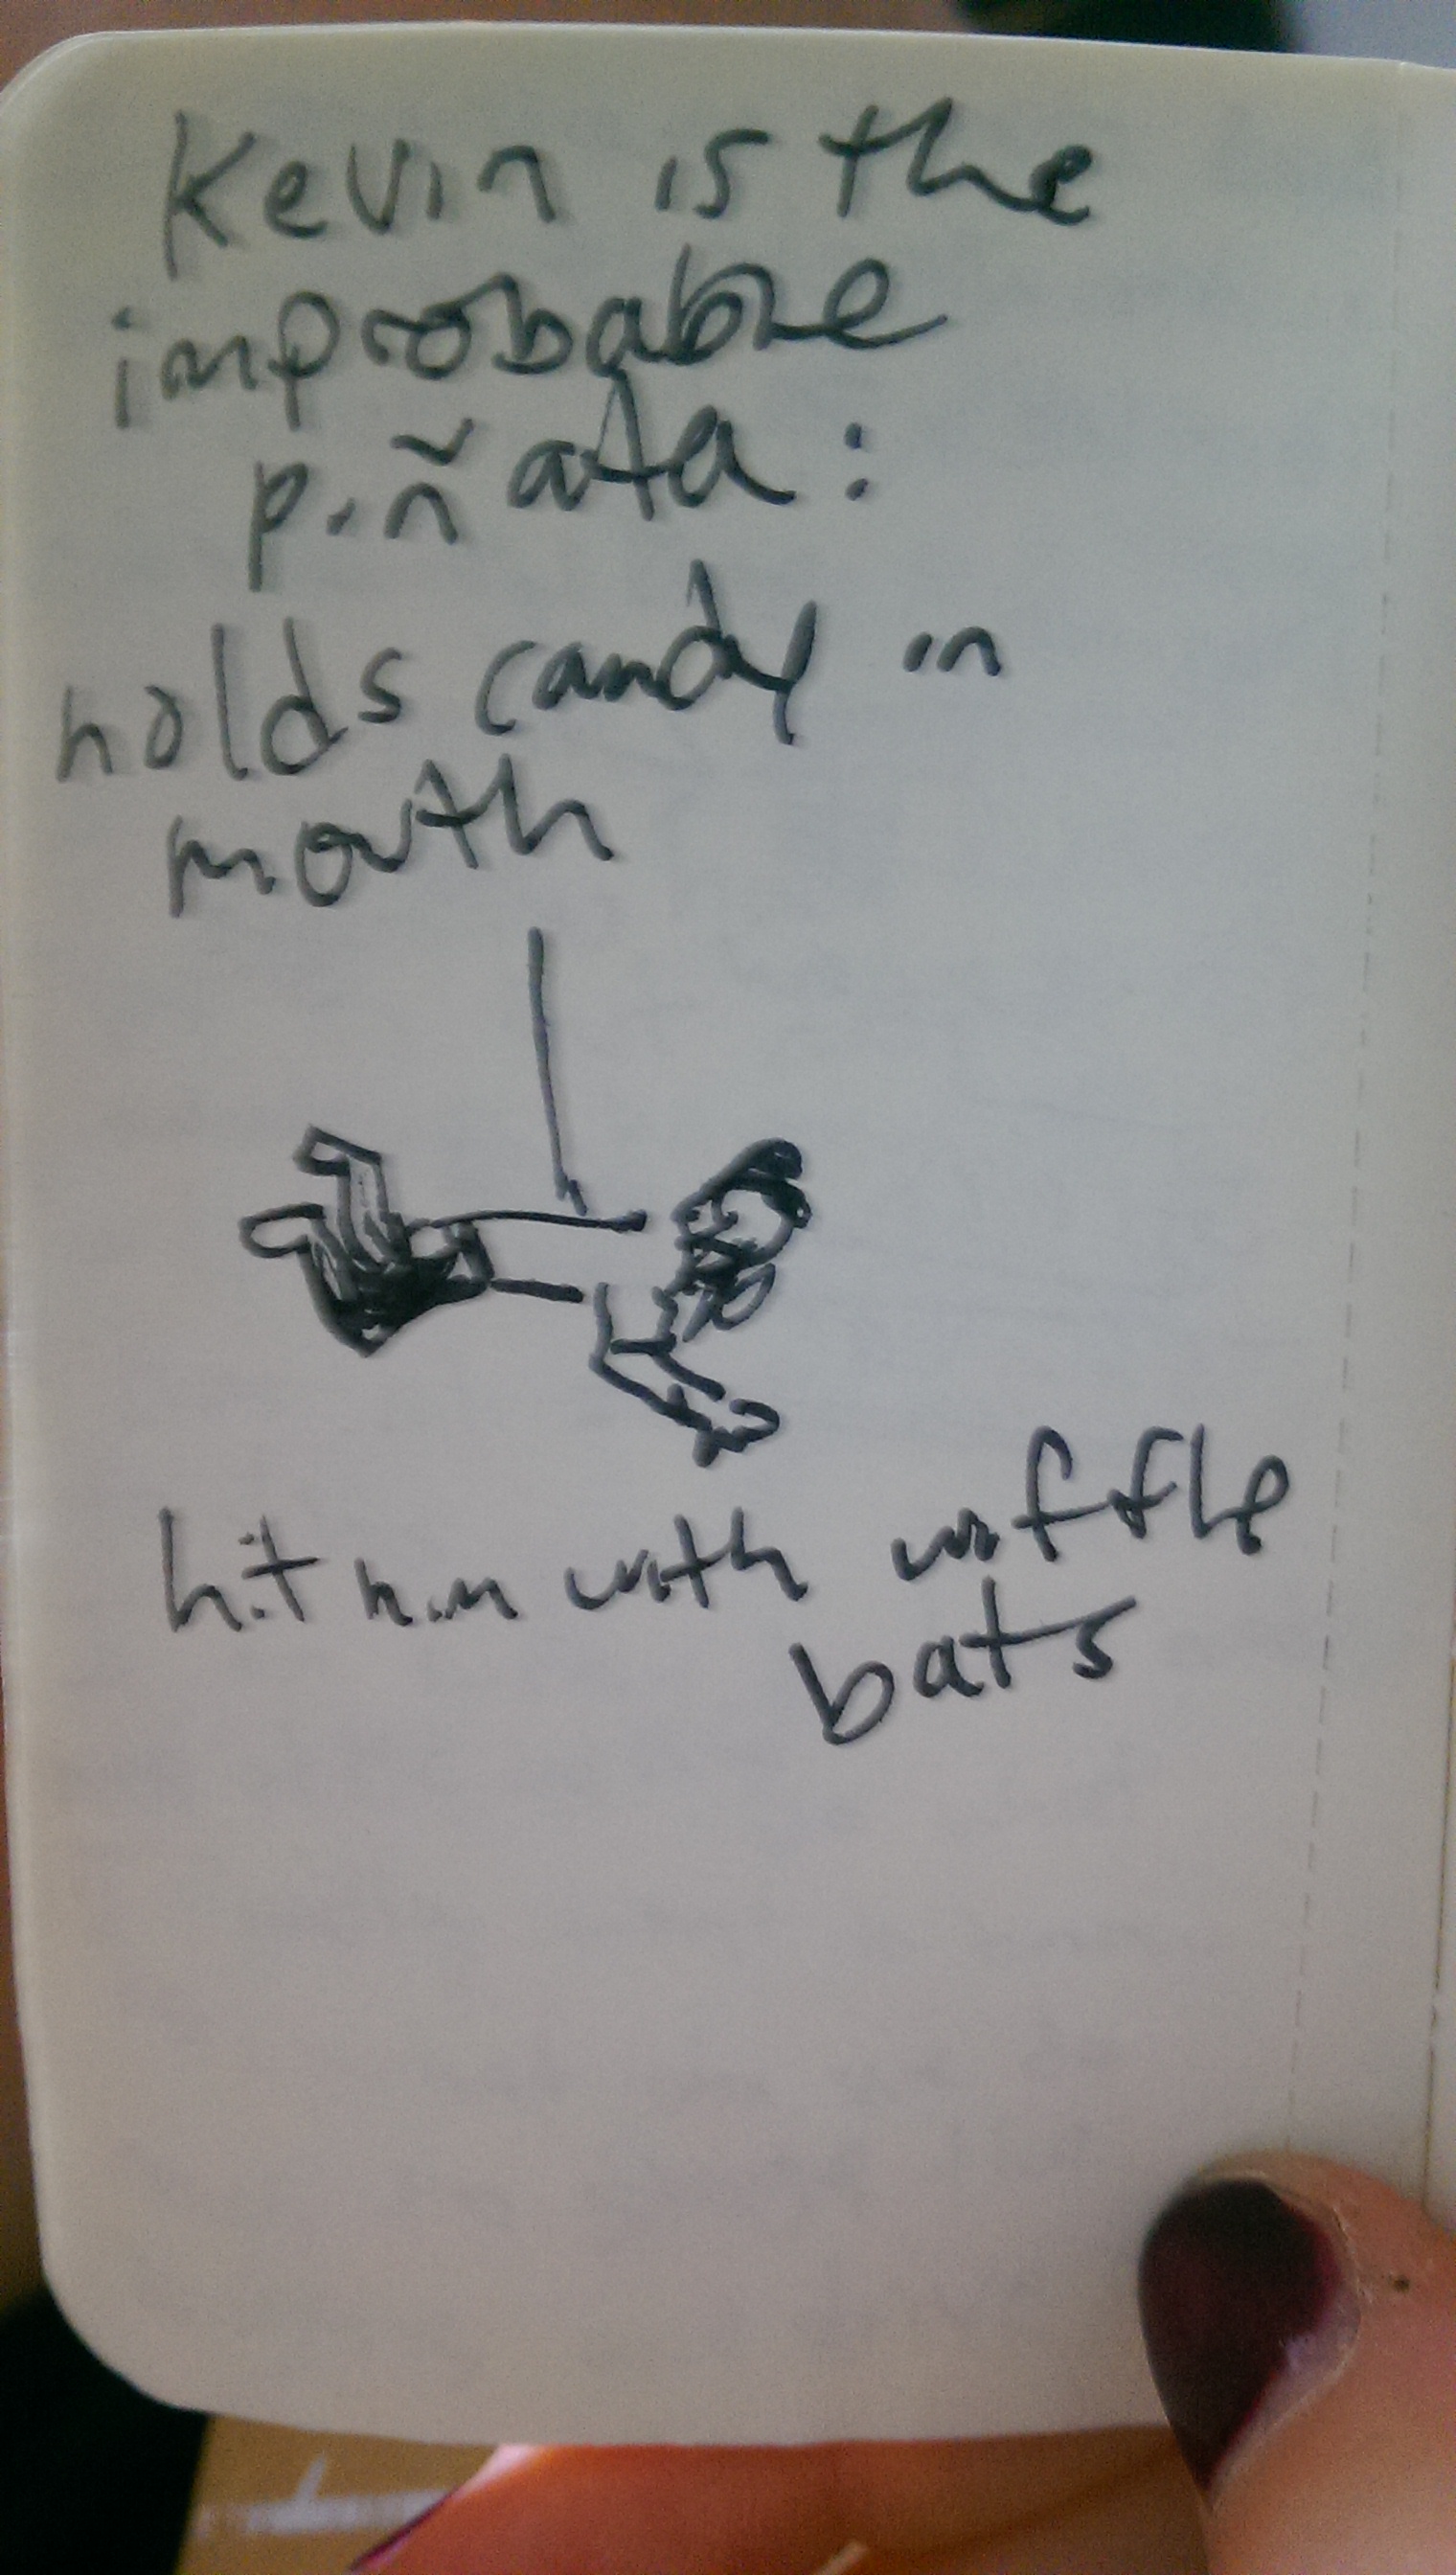 Kevin is the
improbable
piñata:
holds candy in
mouth
hit him with wiffle
bats